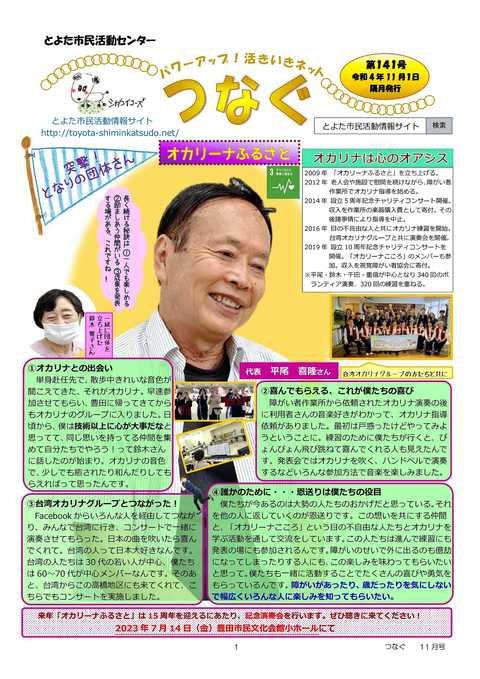 とよた市民活動センター
パワーアップ！活きいきネット
つなぐ
第141号
令和4年11月1日
隔月発行
とよた市民活動情報サイト
http://toyota-shiminkatsudo.net/
とよた市民活動情報サイト 検索
突撃
となりの団体さん
オカリーナふるさと
3
オカリナは心のオアシス
2009 年 「オカリーナふるさと」を立ち上げる。
2012 年 老人会や施設で慰問を続けながら、障がい者
作業所でオカリナ指導を始める。
2014 年 設立5周年記念チャリティコンサート開催。
収入を作業所の楽器購入費として寄付。その
後諸事情により指導を中止。
2016 年 目の不自由な人と共にオカリナ練習を開始。
台湾オカリナグループと共に演奏会を開催。
2019 年 設立10周年記念チャリティコンサートを
開催。「オカリーナこころ」のメンバーも参
加。収入を視覚障がい者協会に寄付。
※平尾・鈴木・千田・重信が中心となり 340 回のボ
ランティア演奏、320 回の練習を重ねる。
長く続ける秘訣は①一人でも楽しめる
②励ましあう仲間がいる ③成果を発表
する場がある、これですね！
一緒に団体を
立ち上げた
鈴木 雅子さん
代表 平尾 喜隆さん
台湾オカリナグループのかたたちと共に
①オカリナとの出会い
単身赴任先で、散歩中きれいな音色が
聞こえてきた、それがオカリナ。早速参
加させてもらい、豊田に帰ってきてから
もオカリナのグループに入りました。日
頃から、僕は技術以上に心が大事だなと
思ってて、同じ思いを持ってる仲間を集
めて自分たちでやろう！って鈴木さん
に話したのが始まり。オカリナの音色
で、少しでも癒されたり和んだりしても
らえればって思ったんです。
②喜んでもらえる、これが僕たちの喜び
障がい者作業所から依頼されたオカリナ演奏の後
に利用者さんの音楽好きがわかって、オカリナ指導
依頼がありました。最初は戸惑ったけどやってみよ
うということに。練習のために僕たちが行くと、ぴ
ょんぴょん飛び跳ねて喜んでくれる人も見えたんで
す。発表会ではオカリナを吹く、ハンドベルで演奏
するなどいろんな参加方法で音楽を楽しみました。
③台湾オカリナグループとつながった！
Facebook からいろんな人を経由してつなが
り、みんなで台湾に行き、コンサートで一緒に
演奏させてもらった。日本の曲を吹いたら喜ん
でくれて。台湾の人って日本大好きなんです。
台湾の人たちは 30 代の若い人が中心、僕たち
は 60～70 代が中心メンバーなんです。そのあ
と、台湾からこの高橋地区にも来てくれて、こ
ちらでもコンサートを実施しました。
④誰かのために・・・恩送りは僕たちの役目
僕たちが今あるのは大勢の人たちのおかげだと思っている。それ
を他の人に返していくのが恩送りです。この想いを共にする仲間
と、「オカリーナこころ」という目の不自由な人たちとオカリナを
学ぶ活動を通して交流をしています。この人たちは進んで練習にも
発表の場にも参加されるんです。障がいのせいで外に出るのも億劫
になってしまったりする人にも、この楽しみを味わってもらいたい
と思って。僕たちも一緒に活動することでたくさんの喜びや勇気を
もらっているんです。障がいがあったり、歳だったりを気にしない
で幅広くいろんな人に楽しみを知ってもらいたい。
来年「オカリーナふるさと」は 15 周年を迎えるにあたり、記念演奏会を行います。ぜひ聴きに来てください！
2023 年 7 月 14 日（金）豊田市民文化会館小ホールにて
1
つなぐ 11 月号